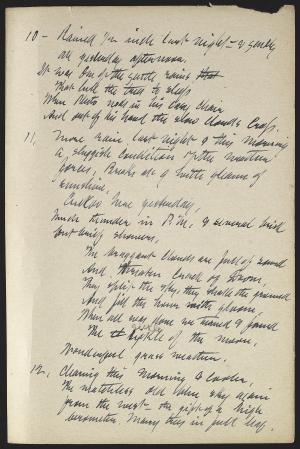 10 - Rained ½ inch last night - & gently
all yesterday afternoon.
It was one of the gentle rains
That lull the trees to sleep
When Pluto nods in his easy chair
And out of his hand the slow clouds creep.
11, More rain last night & this morning
a sluggish condition of the weather
forces, Breaks at 9 with gleams of
sunshine,
yesterday,
Much thunder in P.M. & several brisk
but brief showers,
The arrogant clouds are full of sound
And threaten loud of doom,
They split the sky, they shake the ground
And fill the house with gloom,
When all was done we turned & found
The of the moon,
Wonderful grass weather.
12, Clearing this morning & cooler,
The matchless old blue sky again
from the west - the gift of a high
barometer. Many trees in full leaf.